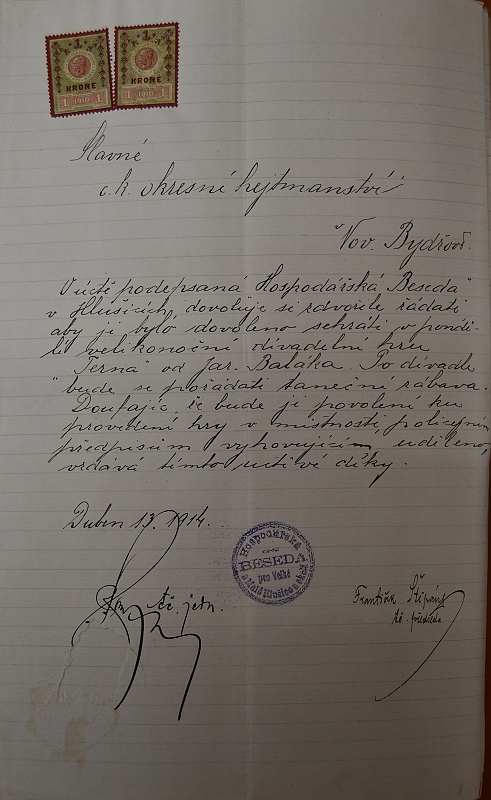 1 1
KRONE KRONE
1 1910 1 1 1910 1
Slavné
c. k. okresné hejtmanství
v Nov. Bydžově.
V úctě podepsaná "Hospodářská Beseda"
v Hlušicích, dovoluje si zdvořile žádati
aby jí bylo dovoleno sehráti v pondě-
lí velikonoční divadelní hru
"Černá" od Jar. Baláka. Po divadle
bude se pořádati taneční zábava.
Doufajíc, že bude jí povolení ku
provedení hry v místnosti policejním
předpisům vyhovujícím uděleno,
vzdává tímto uctivé díky.
Duben 13. 1914.
Hospodářská
BESEDA
pro Velké
a Malé Hlušice a okolí
čš. jedn.
František Štěpánek
čš. předseda